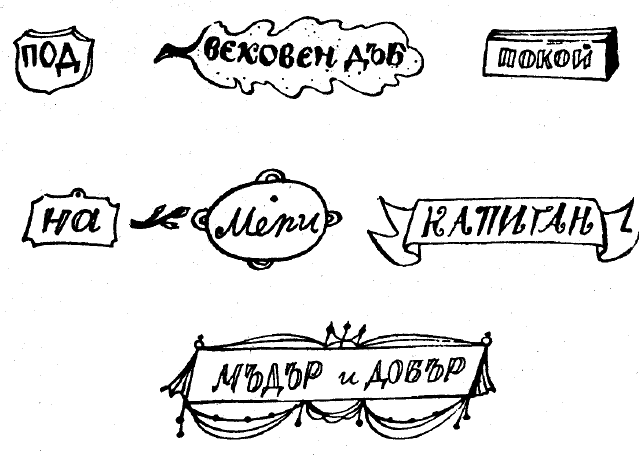 ПОД ВЕКОВЕН ДЪБ ПОКОЙ
на Мери КАПИТАН
МЪДЪР и ДОБЪР